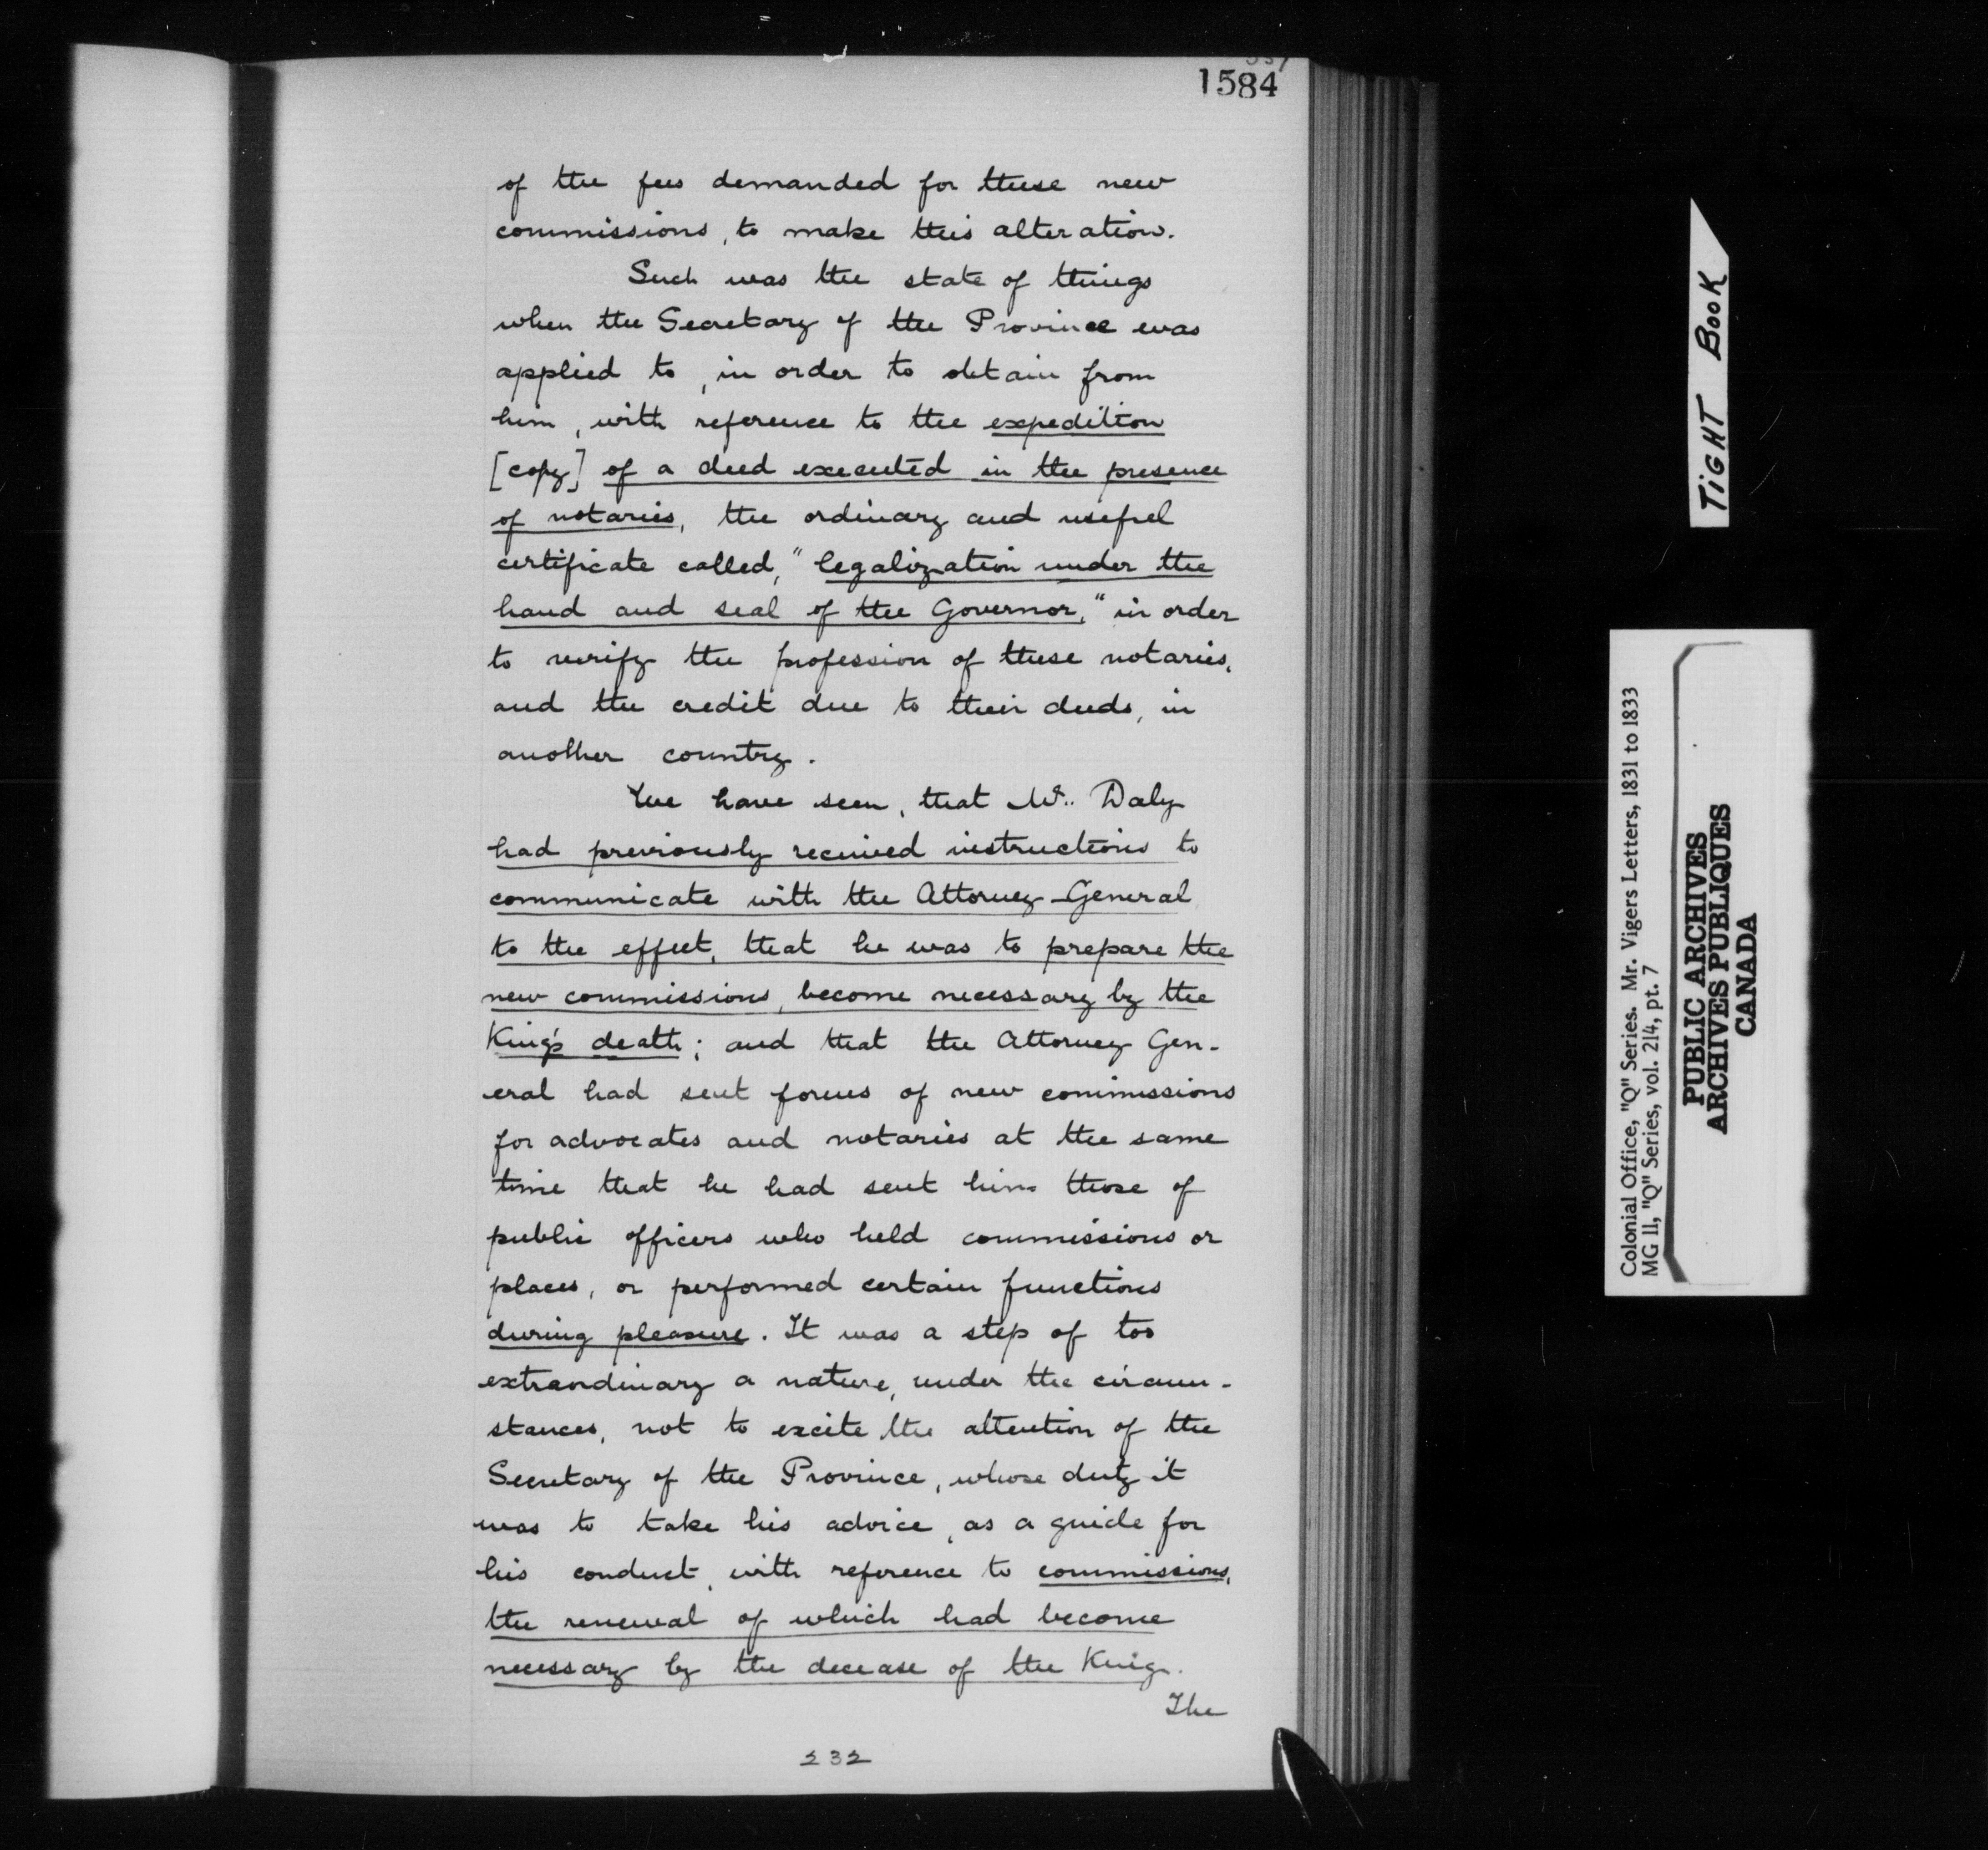 1584
of the fees demanded for these new
commissions, to make this alteration.
Such was the state of things
when the Secretary of the Province was
applied to, in order to obtain from
him, with reference to the expedition
[copy] of a deed executed in the presence
of notaries, the ordinary and useful
certificate called, "legalization under the
hand and seal of the Governor," in order
to verify the profession of these notaries,
and the credit due to their deeds, in
another country.
We have seen, that Mr. Daly
had previously received instructions to
communicate with the Attorney-General
to the effect, that he was to prepare the
new commissions, become necessary by the
King's death; and that the Attorney Gen-
eral had sent forms of new commissions
for advocates and notaries at the same
time that he had sent him those of
public officers who held commissions or
places, or performed certain functions
during pleasure. It was a step of too
extraordinary a nature, under the circum-
stances, not to excite the attention of the
Secretary of the Province, whose duty it
was to take his advice, as a guide for
his conduct, with reference to commissions,
the renewal of which had become
necessary by the decease of the King.
The
232
TIGHT BOOK
Colonial Office, "Q" Series. Mr. Vigers Letters, 1831 to 1833
MG 11, "Q" Series, vol. 214, pt. 7
PUBLIC ARCHIVES
ARCHIVES PUBLIQUES
CANADA